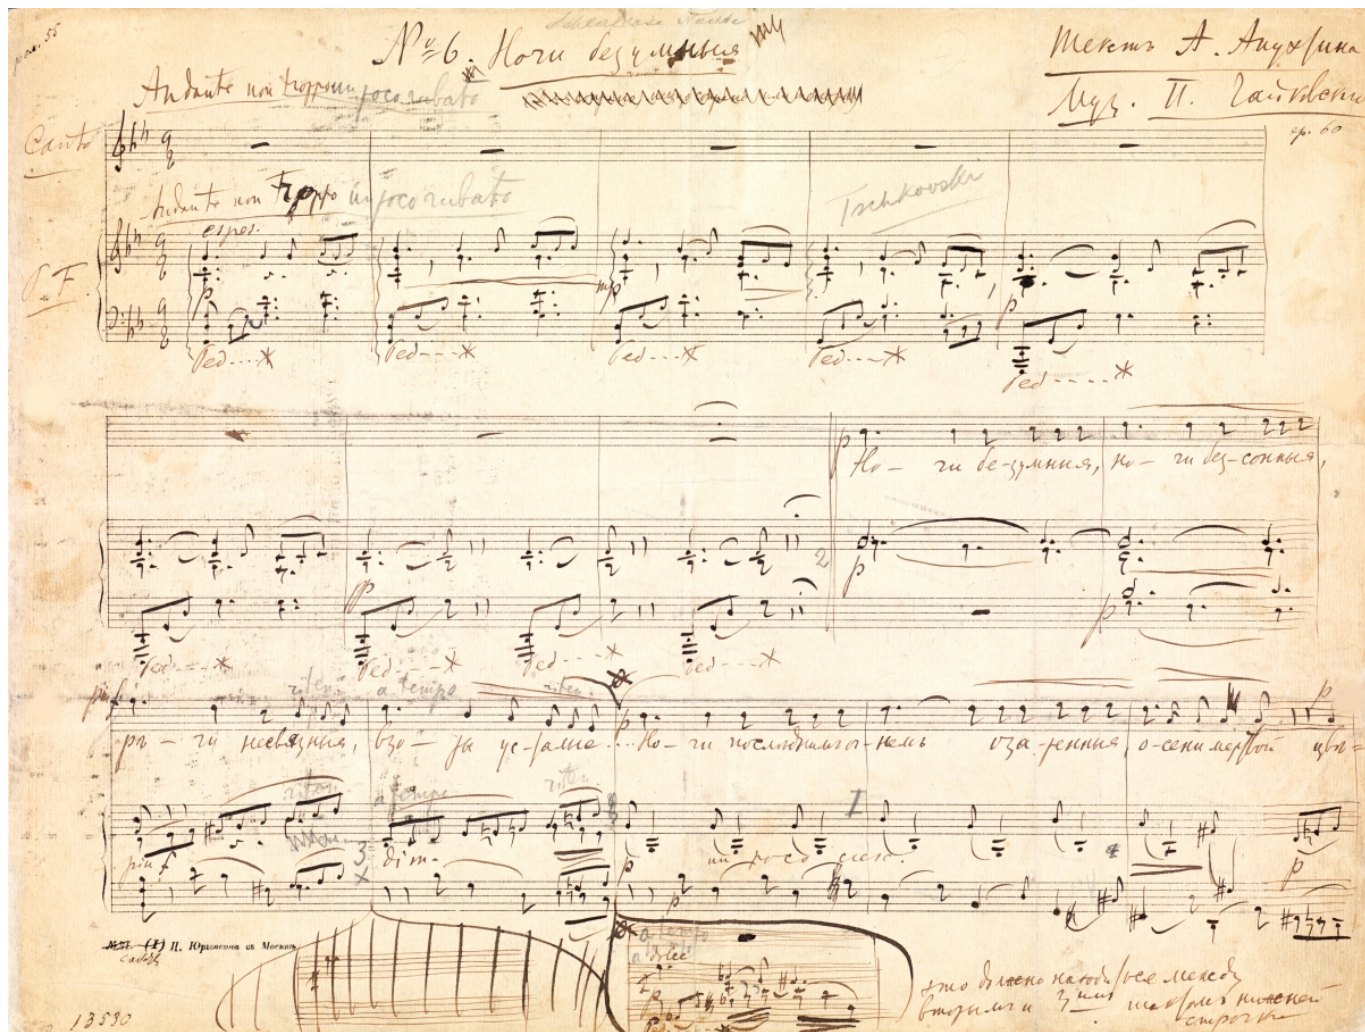 № 6. Ночи безумныя
Текстъ А. Апухтина
Муз. П. Чайковскаго
op. 60
Andante non troppo un poco rubato
Canto
Andante non troppo un poco rubato
Tschkovski
espres.
P. F.
p mp p
Ped....* Ped....* Ped....* Ped....* Ped....*
p
Но- чи бе-зумныя, но- чи без-сонныя,
pp 2 p p
Ped....* Ped....* Ped....* Ped....*
riten. a tempo riten. p p
рѣ- чи несвязныя, взо- ры ус-талые... Но- чи послѣднимъ ог-немъ оза-ренныя, о-сени мертвой цвѣ-
riten. a tempo riten. 1
più f 3 dim. p un poco cresc. p
x p
П. Юргенсона въ Москвѣ
a tempo
dolce
это должно находиться между
вторымъ и 3имъ тактомъ нижней
строчки
13530